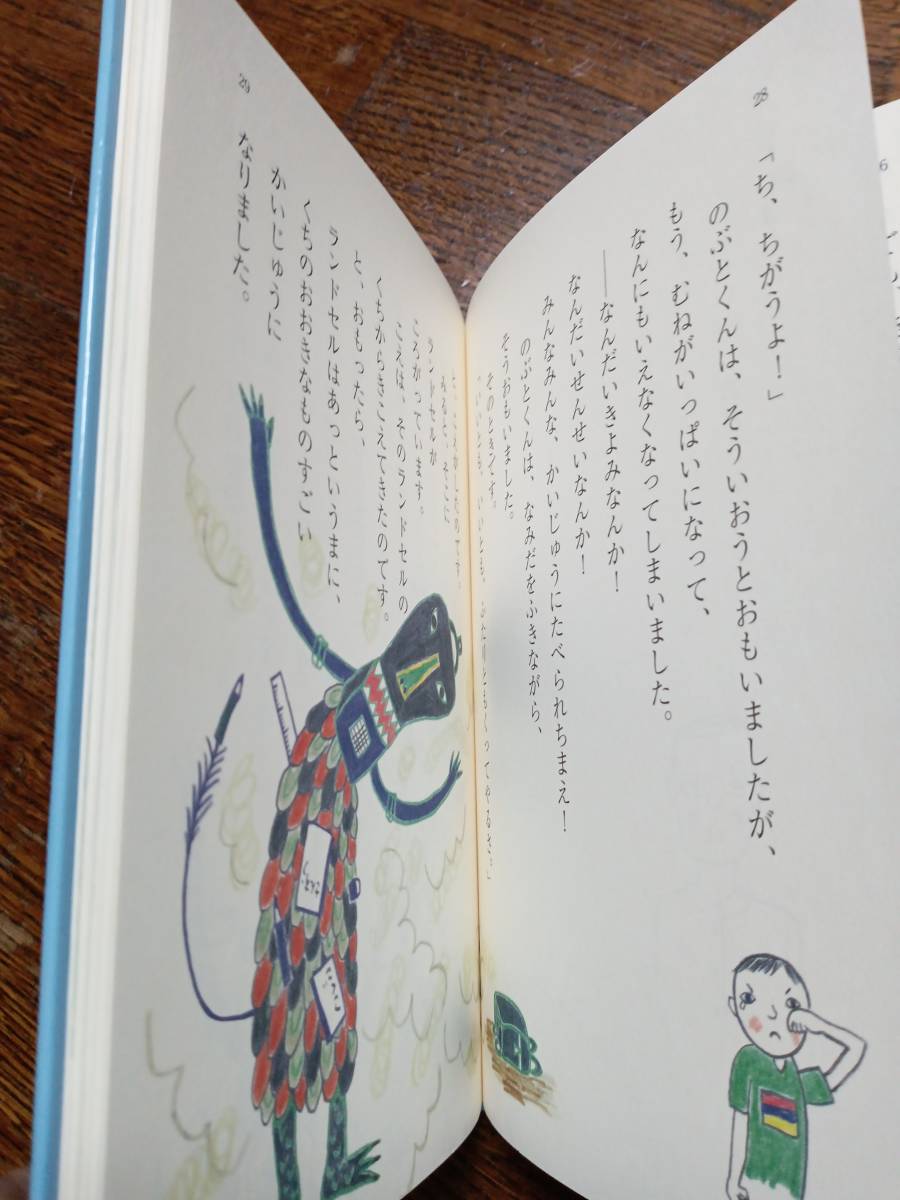 28
「ち、ちがうよ！」
のぶとくんは、そういおうとおもいましたが、
もう、むねがいっぱいになって、
なんにもいえなくなってしまいました。
――なんだいきよみなんか！
なんだいせんせいなんか！
みんなみんな、かいじゅうにたべられちまえ！
のぶとくんは、なみだをふきながら、
そうおもいました。
そのときです。
「いいとも、いいとも。ふたりともくってやるさ。」
ランドセルが
ころがっています。
こえは、そのランドセルの
くちからきこえてきたのです。
と、おもったら、
ランドセルはあっというまに、
くちのおおきなものすごい
かいじゅうに
なりました。
29